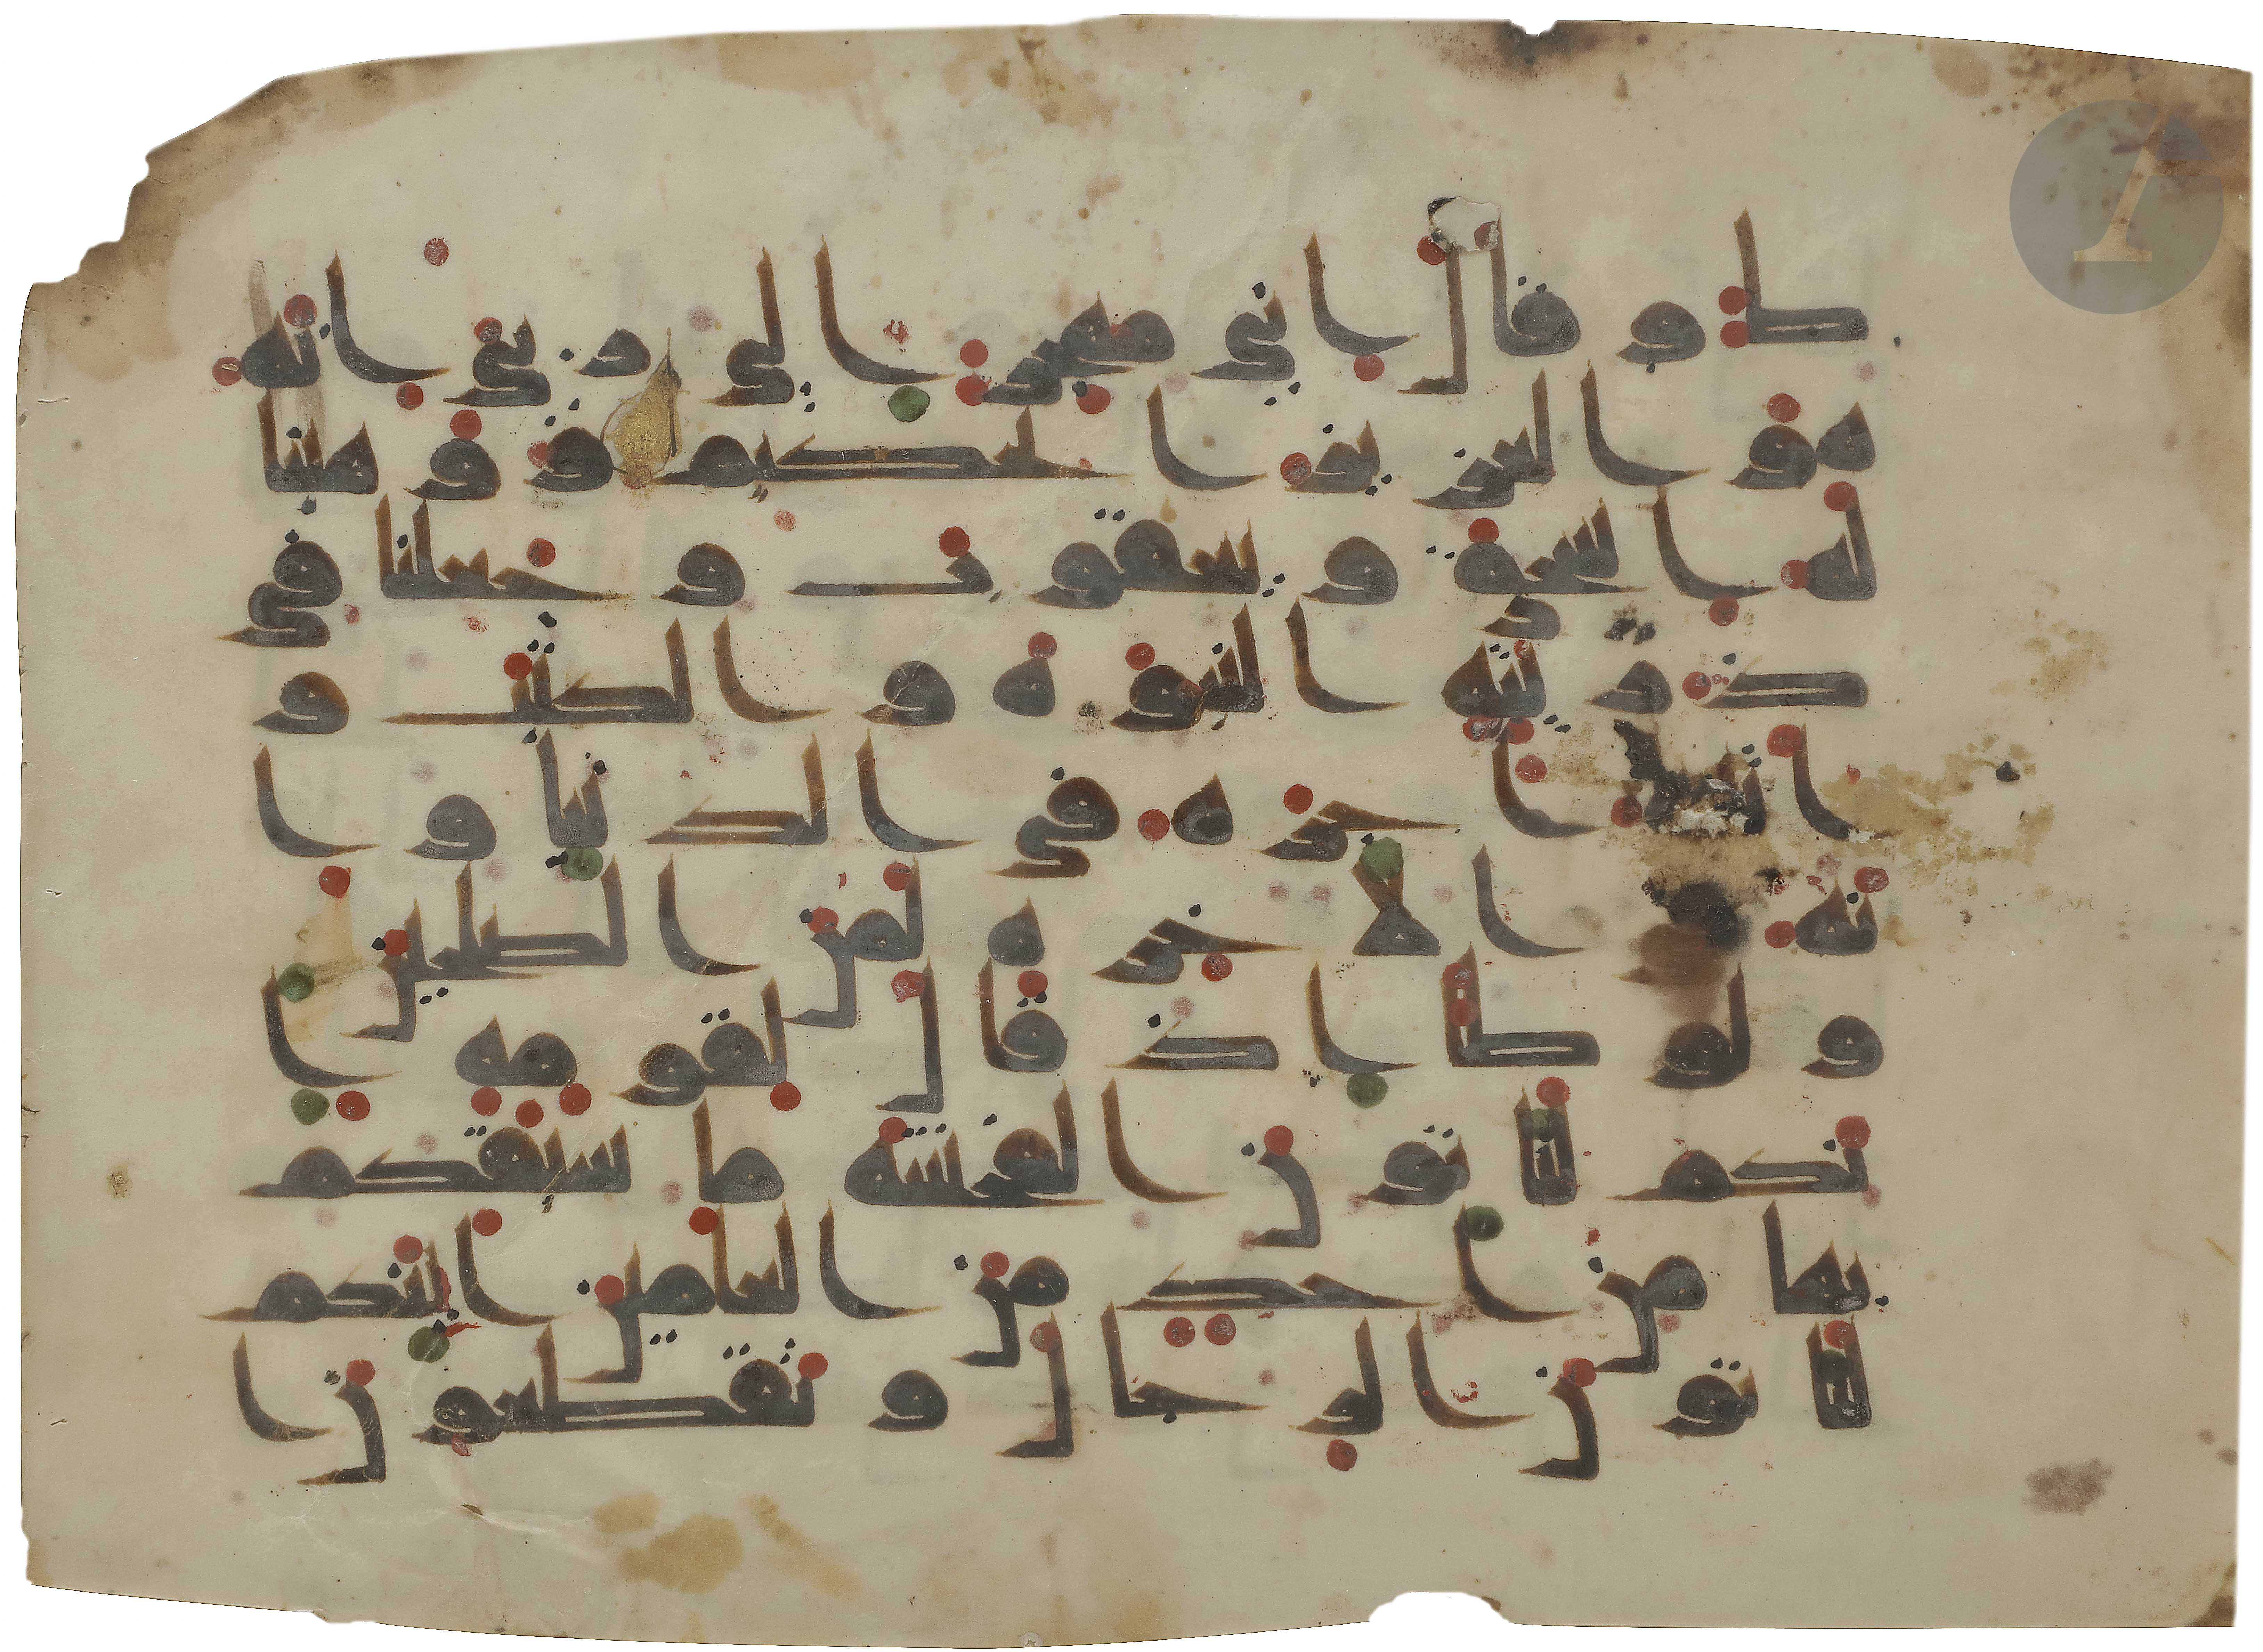 ط وقال اني مهجر الي ربي انه
هو العزيز الحكيم ووهبنا
له اسحق ويعقوب وجعلنا في
ذريته النبوة والكتب و
اتينه اجره في الدنيا وا
نه في الاخرة لمن الصلحين
ولوطا اذ قال لقومه ا
نكم لتاتون الفحشة ما سبقكم
بها من احد من العلمين اينكم
لتاتون الرجال وتقطعون ا